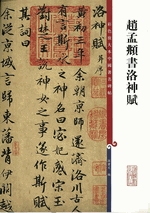 趙孟頫書洛神賦
洛神賦 并序
黃初三年余朝京師還濟洛川古
人有言斯水之神名曰宓妃感宋玉
對楚王神女之事遂作斯賦
余從京域言歸東藩背伊闕越